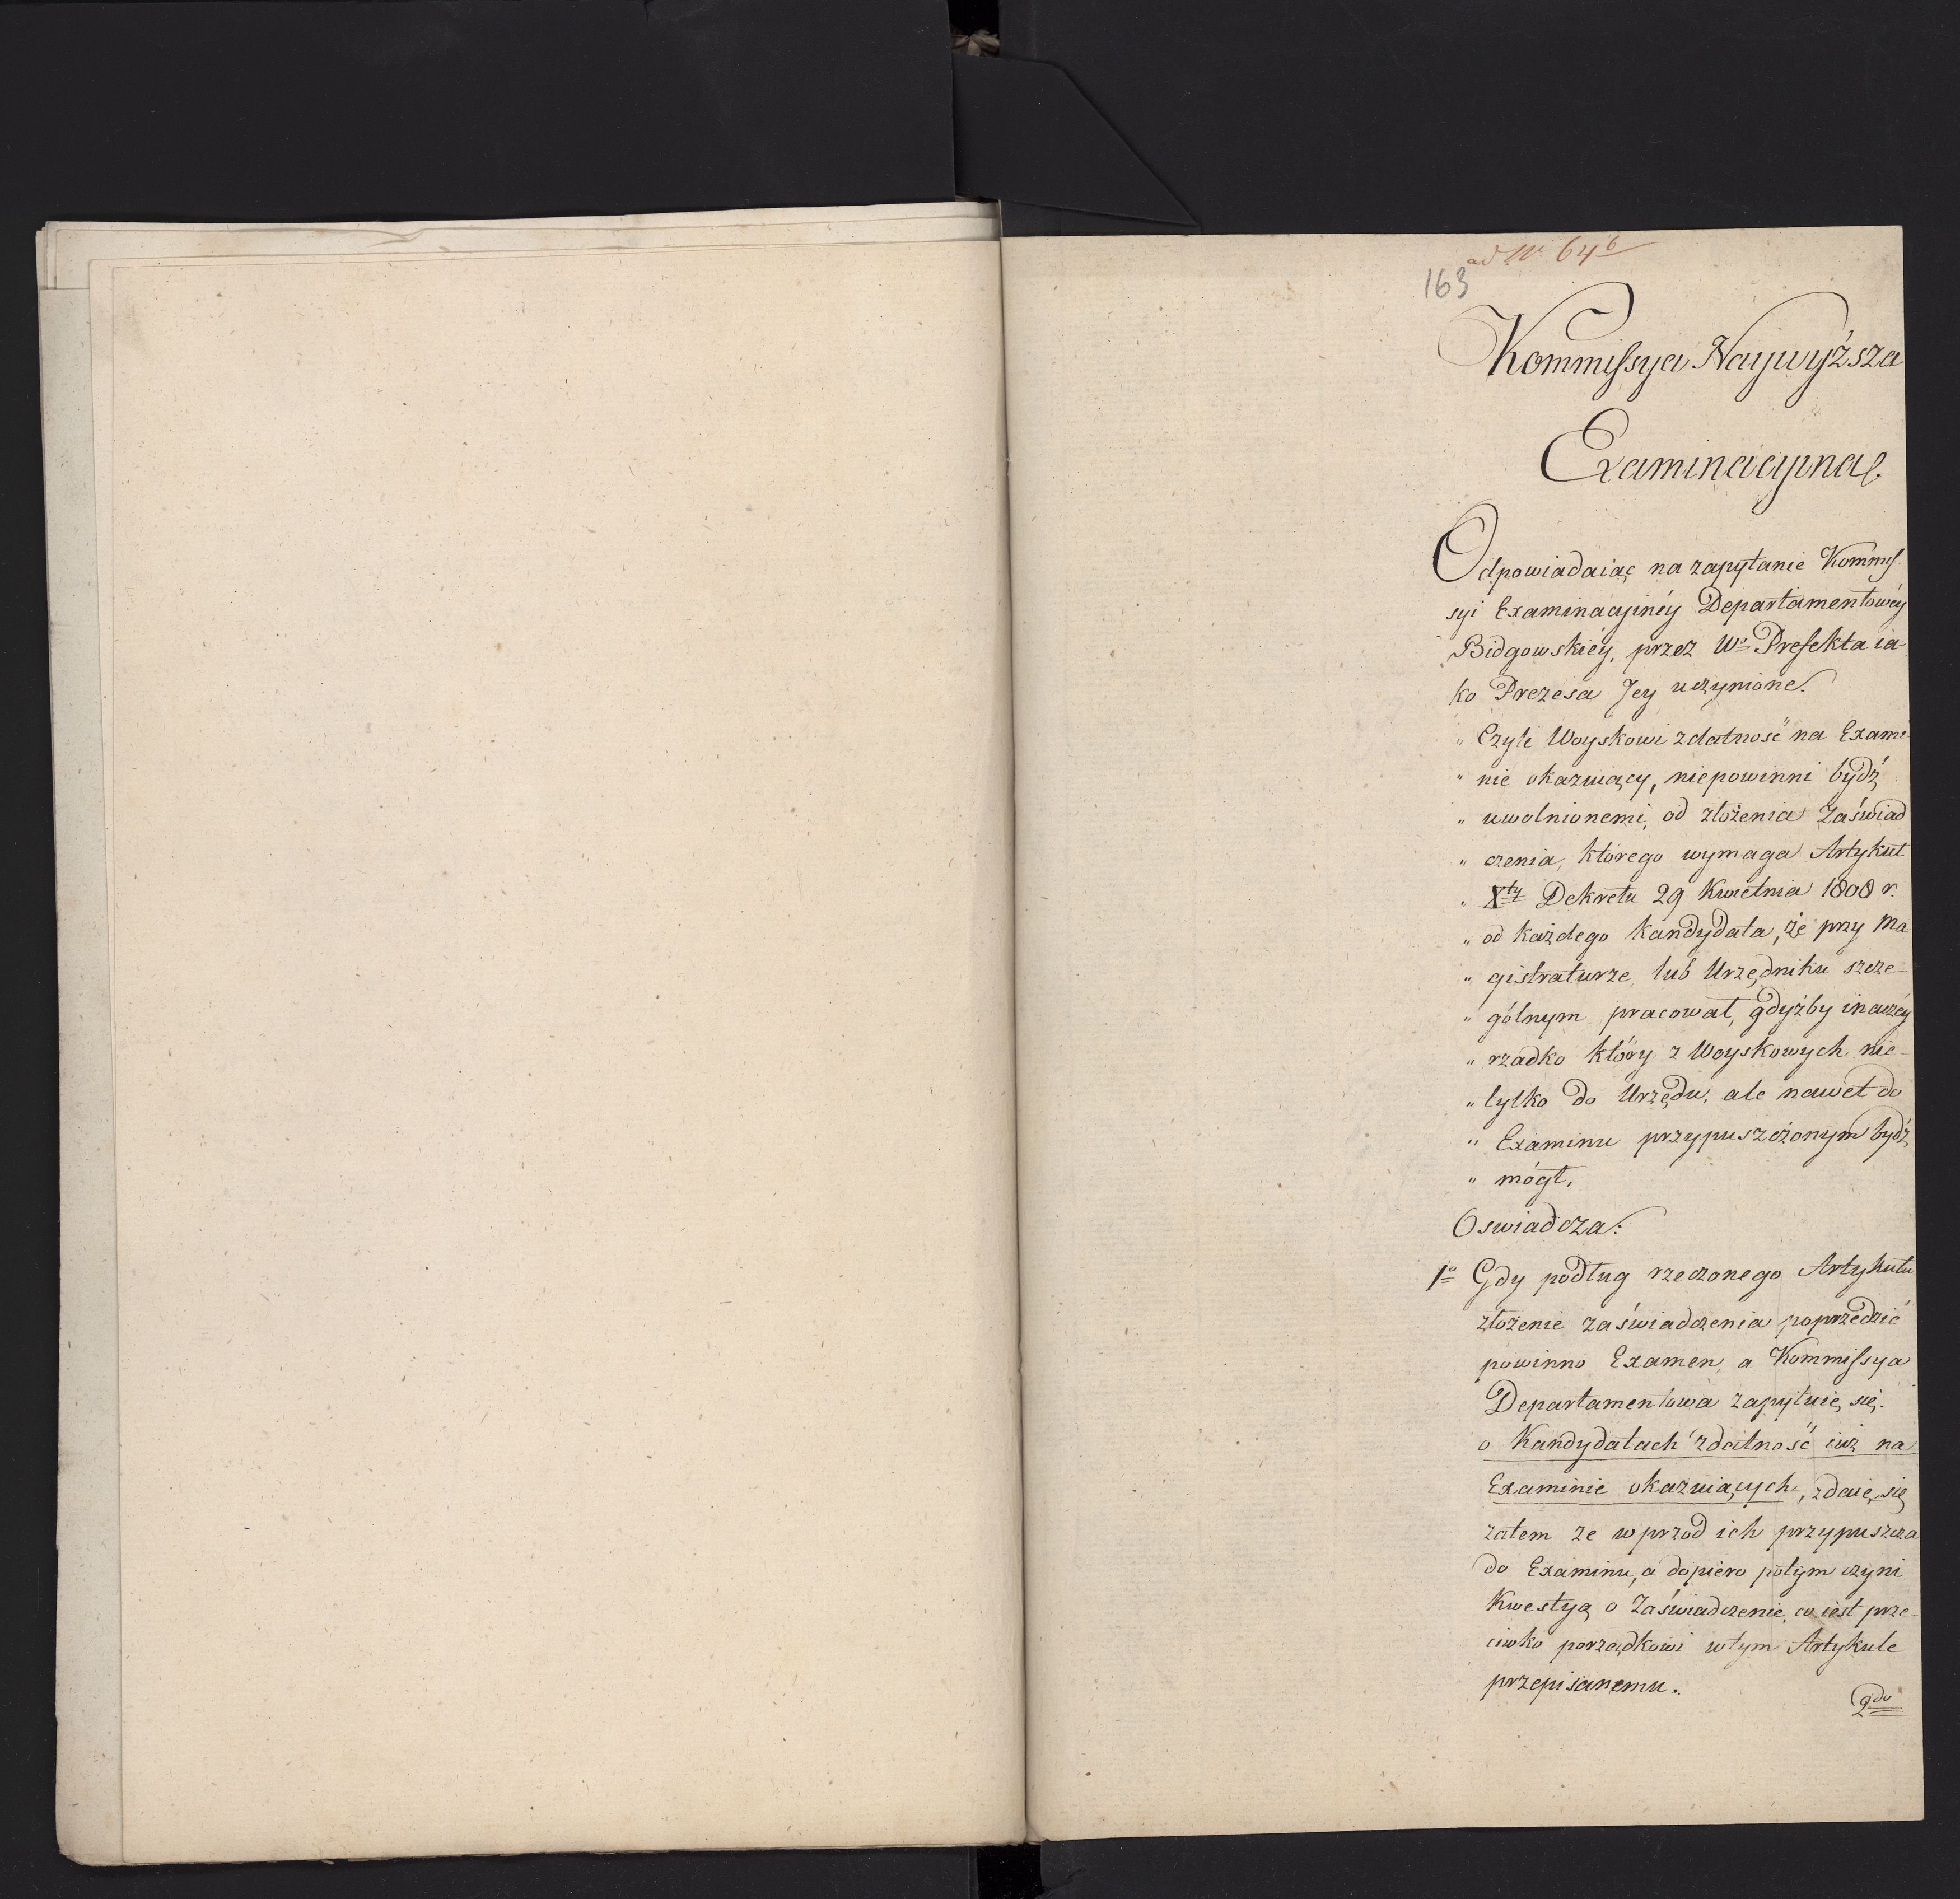 ad N. 64 6
163
Kommissya Naywyższa
Examinacyina.
Odpowiadaiąc na zapytanie Kommis-
syi Examinacyinéy Departamentowéy
Bidgowskiéy, przez Wo Prefekta ia-
ko Prezesa Jey uczynione.
" Czyli Woyskowi zdatność na Exami-
" nie okazuiący, niepowinni bydź
" uwolnionemi, od złożenia Zaświad
" czenia, którego wymaga Artykuł
" Xty Dekretu 29 Kwietnia 1808 r.
" od każdego Kandydata, że przy Ma
" gistraturze, lub Urzędniku szcze-
" gólnym pracował, gdyżby inaczéy
" rzadko który z Woyskowych nie-
" tylko do Urzędu, ale nawet do
" Examinu przypuszczonym bydź
" mógł.
Oswiadcza:
1o Gdy podług rzeczonego Artykułu
złożenie zaświadczenia poprzedzić
powinno Examen, a Kommissya
Departamentowa zapytuie się
o Kandydatach zdatność iuż na
Examinie okazuiących, zdaie się
zatem ze wprzod ich przypuszcza
do Examinu, a dopiero potym czyni
Kwestyą o Zaświadczenie, co iest prze-
ciwko porządkowi wtym Artykule
przepisanemu.
2do